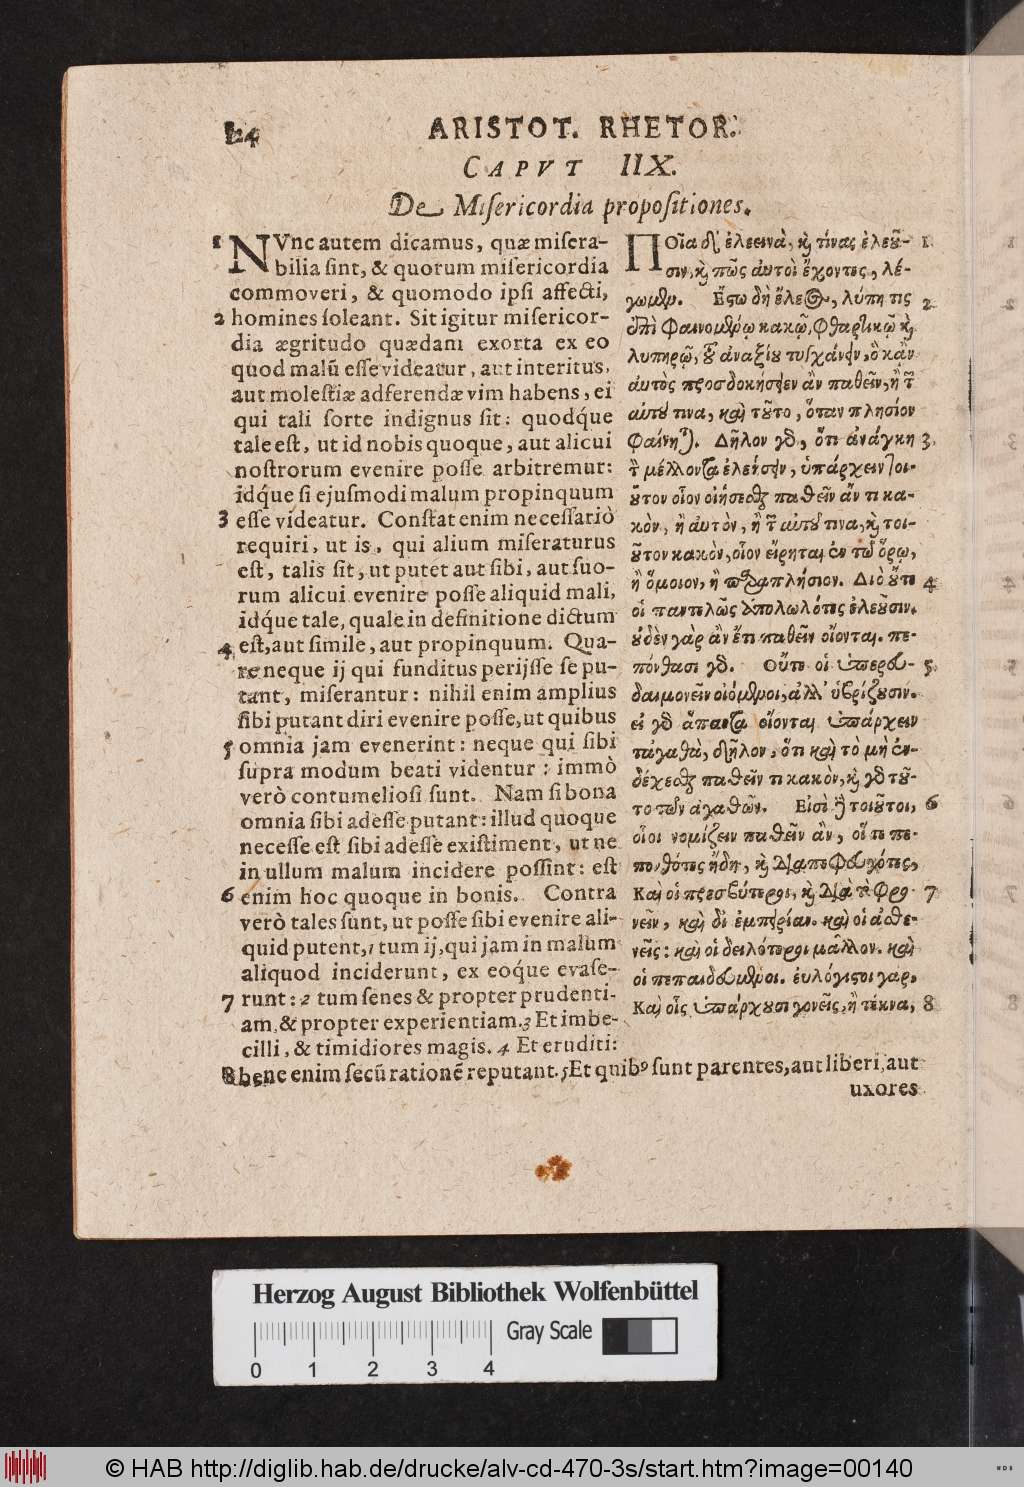 124
ARISTOT. RHETOR.
CAPVT IIX.
De Misericordia propositiones.
1 NVnc autem dicamus, quæ misera-
bilia sint, & quorum misericordia
commoveri, & quomodo ipsi affecti,
2 homines soleant. Sit igitur misericor-
dia ægritudo quædam exorta ex eo
quod malũ esse videatur, aut interitus,
aut molestiæ adferendæ vim habens, ei
qui tali sorte indignus sit: quodq́ue
tale est, ut id nobis quoque, aut alicui
nostrorum evenire posse arbitremur:
idq́ue si ejusmodi malum propinquum
3 esse videatur. Constat enim necessariò
requiri, ut is, qui alium miseraturus
est, talis sit, ut putet aut sibi, aut suo-
rum alicui evenire posse aliquid mali,
idq́ue tale, quale in definitione dictum
4 est, aut simile, aut propinquum. Qua-
re neque ij qui funditus perijsse se pu-
tant, miserantur: nihil enim amplius
sibi putant diri evenire posse, ut quibus
5 omnia jam evenerint: neque qui sibi
supra modum beati videntur: immò
verò contumeliosi sunt. Nam si bona
omnia sibi adesse putant: illud quoque
necesse est sibi adesse existiment, ut ne
in ullum malum incidere possint: est
6 enim hoc quoque in bonis. Contra
verò tales sunt, ut posse sibi evenire ali-
quid putent, 1 tum ij, qui jam in malum
aliquod inciderunt, ex eoq́ue evase-
7 runt: 2 tum senes & propter prudenti-
am, & propter experientiam. 3 Et imbe-
cilli, & timidiores magis. 4 Et eruditi:
8 bene enim secũ rationẽ reputant. 5 Et quibꝰ sunt parentes, aut liberi, aut
uxores
ΠΟῖα δὲ ἐλεεινὰ, καὶ τίνας ἐλεοῦ- 1
σιν, καὶ πῶς αὐτοὶ ἔχοντες, λέ-
γωμεν. Ἔστω δὴ ἔλεος, λύπη τις 2
ἐπὶ φαινομένῳ κακῷ, φθαρτικῷ καὶ
λυπηρῷ, τοῦ ἀναξίου τυγχάνειν, ὃ κἂν
αὐτὸς προσδοκήσειεν ἂν παθεῖν, ἢ τῶν
αὐτοῦ τινα, καὶ τοῦτο, ὅταν πλησίον
φαίνηται. Δῆλον γὰρ, ὅτι ἀνάγκη 3
τὸν μέλλοντα ἐλεήσειν, ὑπάρχειν τοι-
οῦτον οἷον οἰήσεσθαι παθεῖν ἄν τι κα-
κὸν, ἢ αὐτὸν, ἢ τῶν αὐτοῦ τινα, καὶ τοι-
οῦτον κακὸν, οἷον εἴρηται ἐν τῷ ὅρῳ,
ἢ ὅμοιον, ἢ παραπλήσιον. Διὸ οὔτε 4
οἱ παντελῶς ἀπολωλότες ἐλεοῦσιν.
οὐδὲν γὰρ ἂν ἔτι παθεῖν οἴονται. πε-
πόνθασι γὰρ. Οὔτε οἱ ὑπερευ- 5
δαιμονεῖν οἰόμενοι, ἀλλ' ὑβρίζουσιν.
εἰ γὰρ ἅπαντα οἴονται ὑπάρχειν
τἀγαθὰ, δῆλον, ὅτι καὶ τὸ μὴ ἐν-
δέχεσθαι παθεῖν τι κακὸν, καὶ γὰρ τοῦ-
το τῶν ἀγαθῶν. Εἰσὶ δὲ τοιοῦτοι, 6
οἷοι νομίζειν παθεῖν ἂν, οἵ τε πε-
πονθότες ἤδη, καὶ διαπεφευγότες,
Καὶ οἱ πρεσβύτεροι, καὶ διὰ τὸ φρο- 7
νεῖν, καὶ δι' ἐμπειρίαν. καὶ οἱ ἀσθε-
νεῖς: καὶ οἱ δειλότεροι μᾶλλον. καὶ
οἱ πεπαιδευμένοι. εὐλόγιστοι γὰρ,
Καὶ οἷς ὑπάρχουσι γονεῖς, ἢ τέκνα, 8
Herzog August Bibliothek Wolfenbüttel
Gray Scale
0 1 2 3 4
© HAB http://diglib.hab.de/drucke/alv-cd-470-3s/start.htm?image=00140